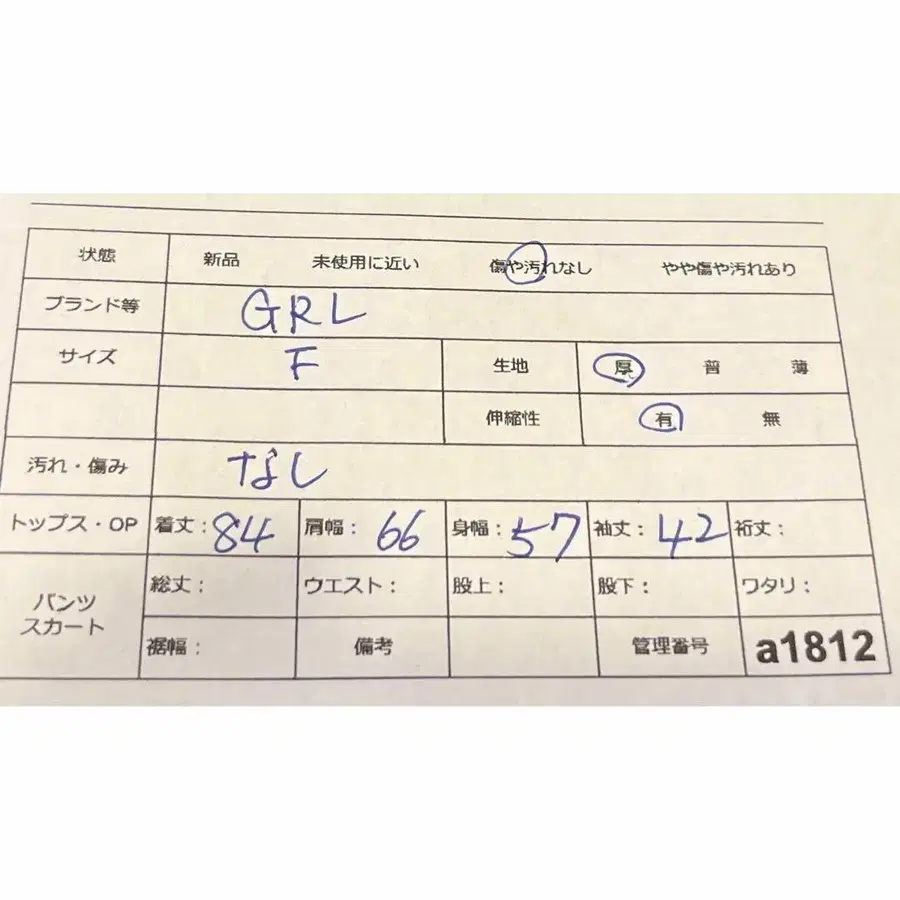 状態 新品 未使用に近い 傷や汚れなし やや傷や汚れあり
ブランド等 GRL
サイズ F 生地 厚 普 薄
伸縮性 有 無
汚れ・傷み なし
トップス・OP 着丈：84 肩幅：66 身幅：57 袖丈：42 裄丈：
パンツ スカート 総丈： ウエスト： 股上： 股下： ワタリ：
裾幅： 備考 管理番号 a1812